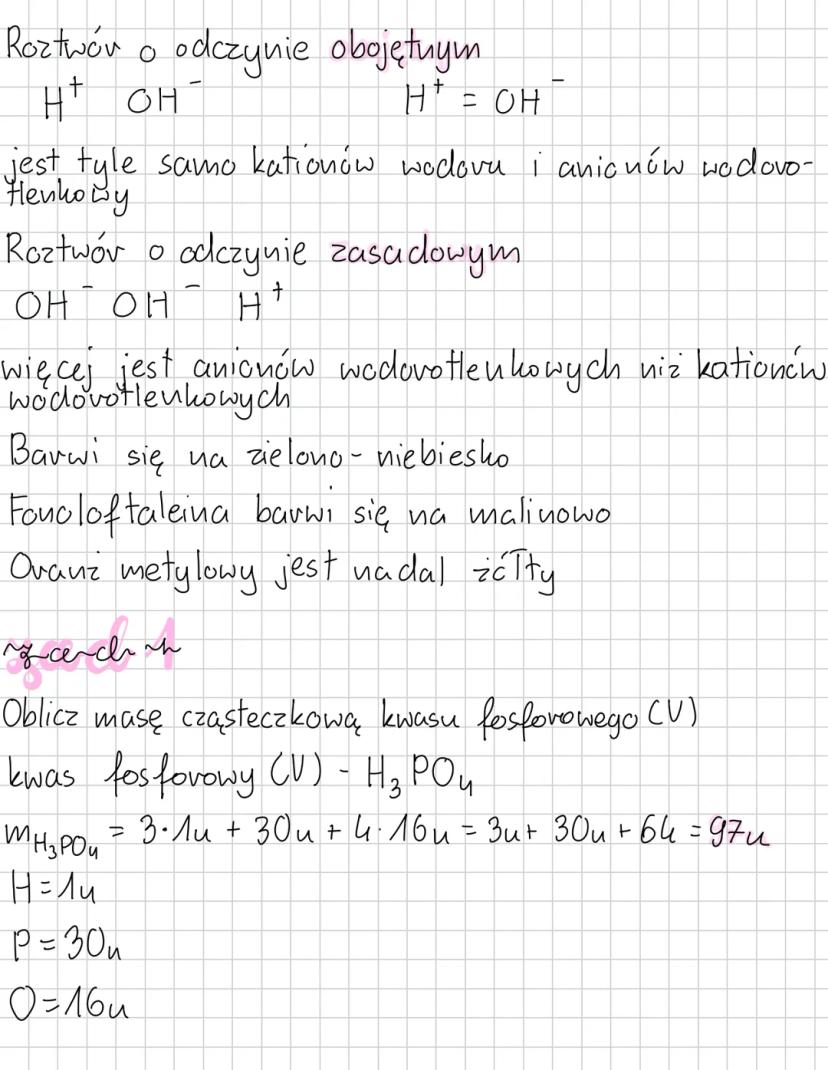 Roztwór o odczynie obojętnym
H⁺ OH⁻ H⁺ = OH⁻
jest tyle samo kationów wodoru i anionów wodoro-
tlenkowy
Roztwór o odczynie zasadowym
OH⁻ OH⁻ H⁺
więcej jest anionów wodorotlenkowych niż kationów
wodorotlenkowych
Barwi się na zielono-niebiesko
Fonoloftaleina barwi się na malinowo
Oranż metylowy jest nadal żółty
zad 1
Oblicz masę cząsteczkową kwasu fosforowego (V)
kwas fosforowy (V) - H₃PO₄
mH₃PO₄ = 3·1u + 30u + 4·16u = 3u + 30u + 64 = 97u
H = 1u
P = 30u
O = 16u